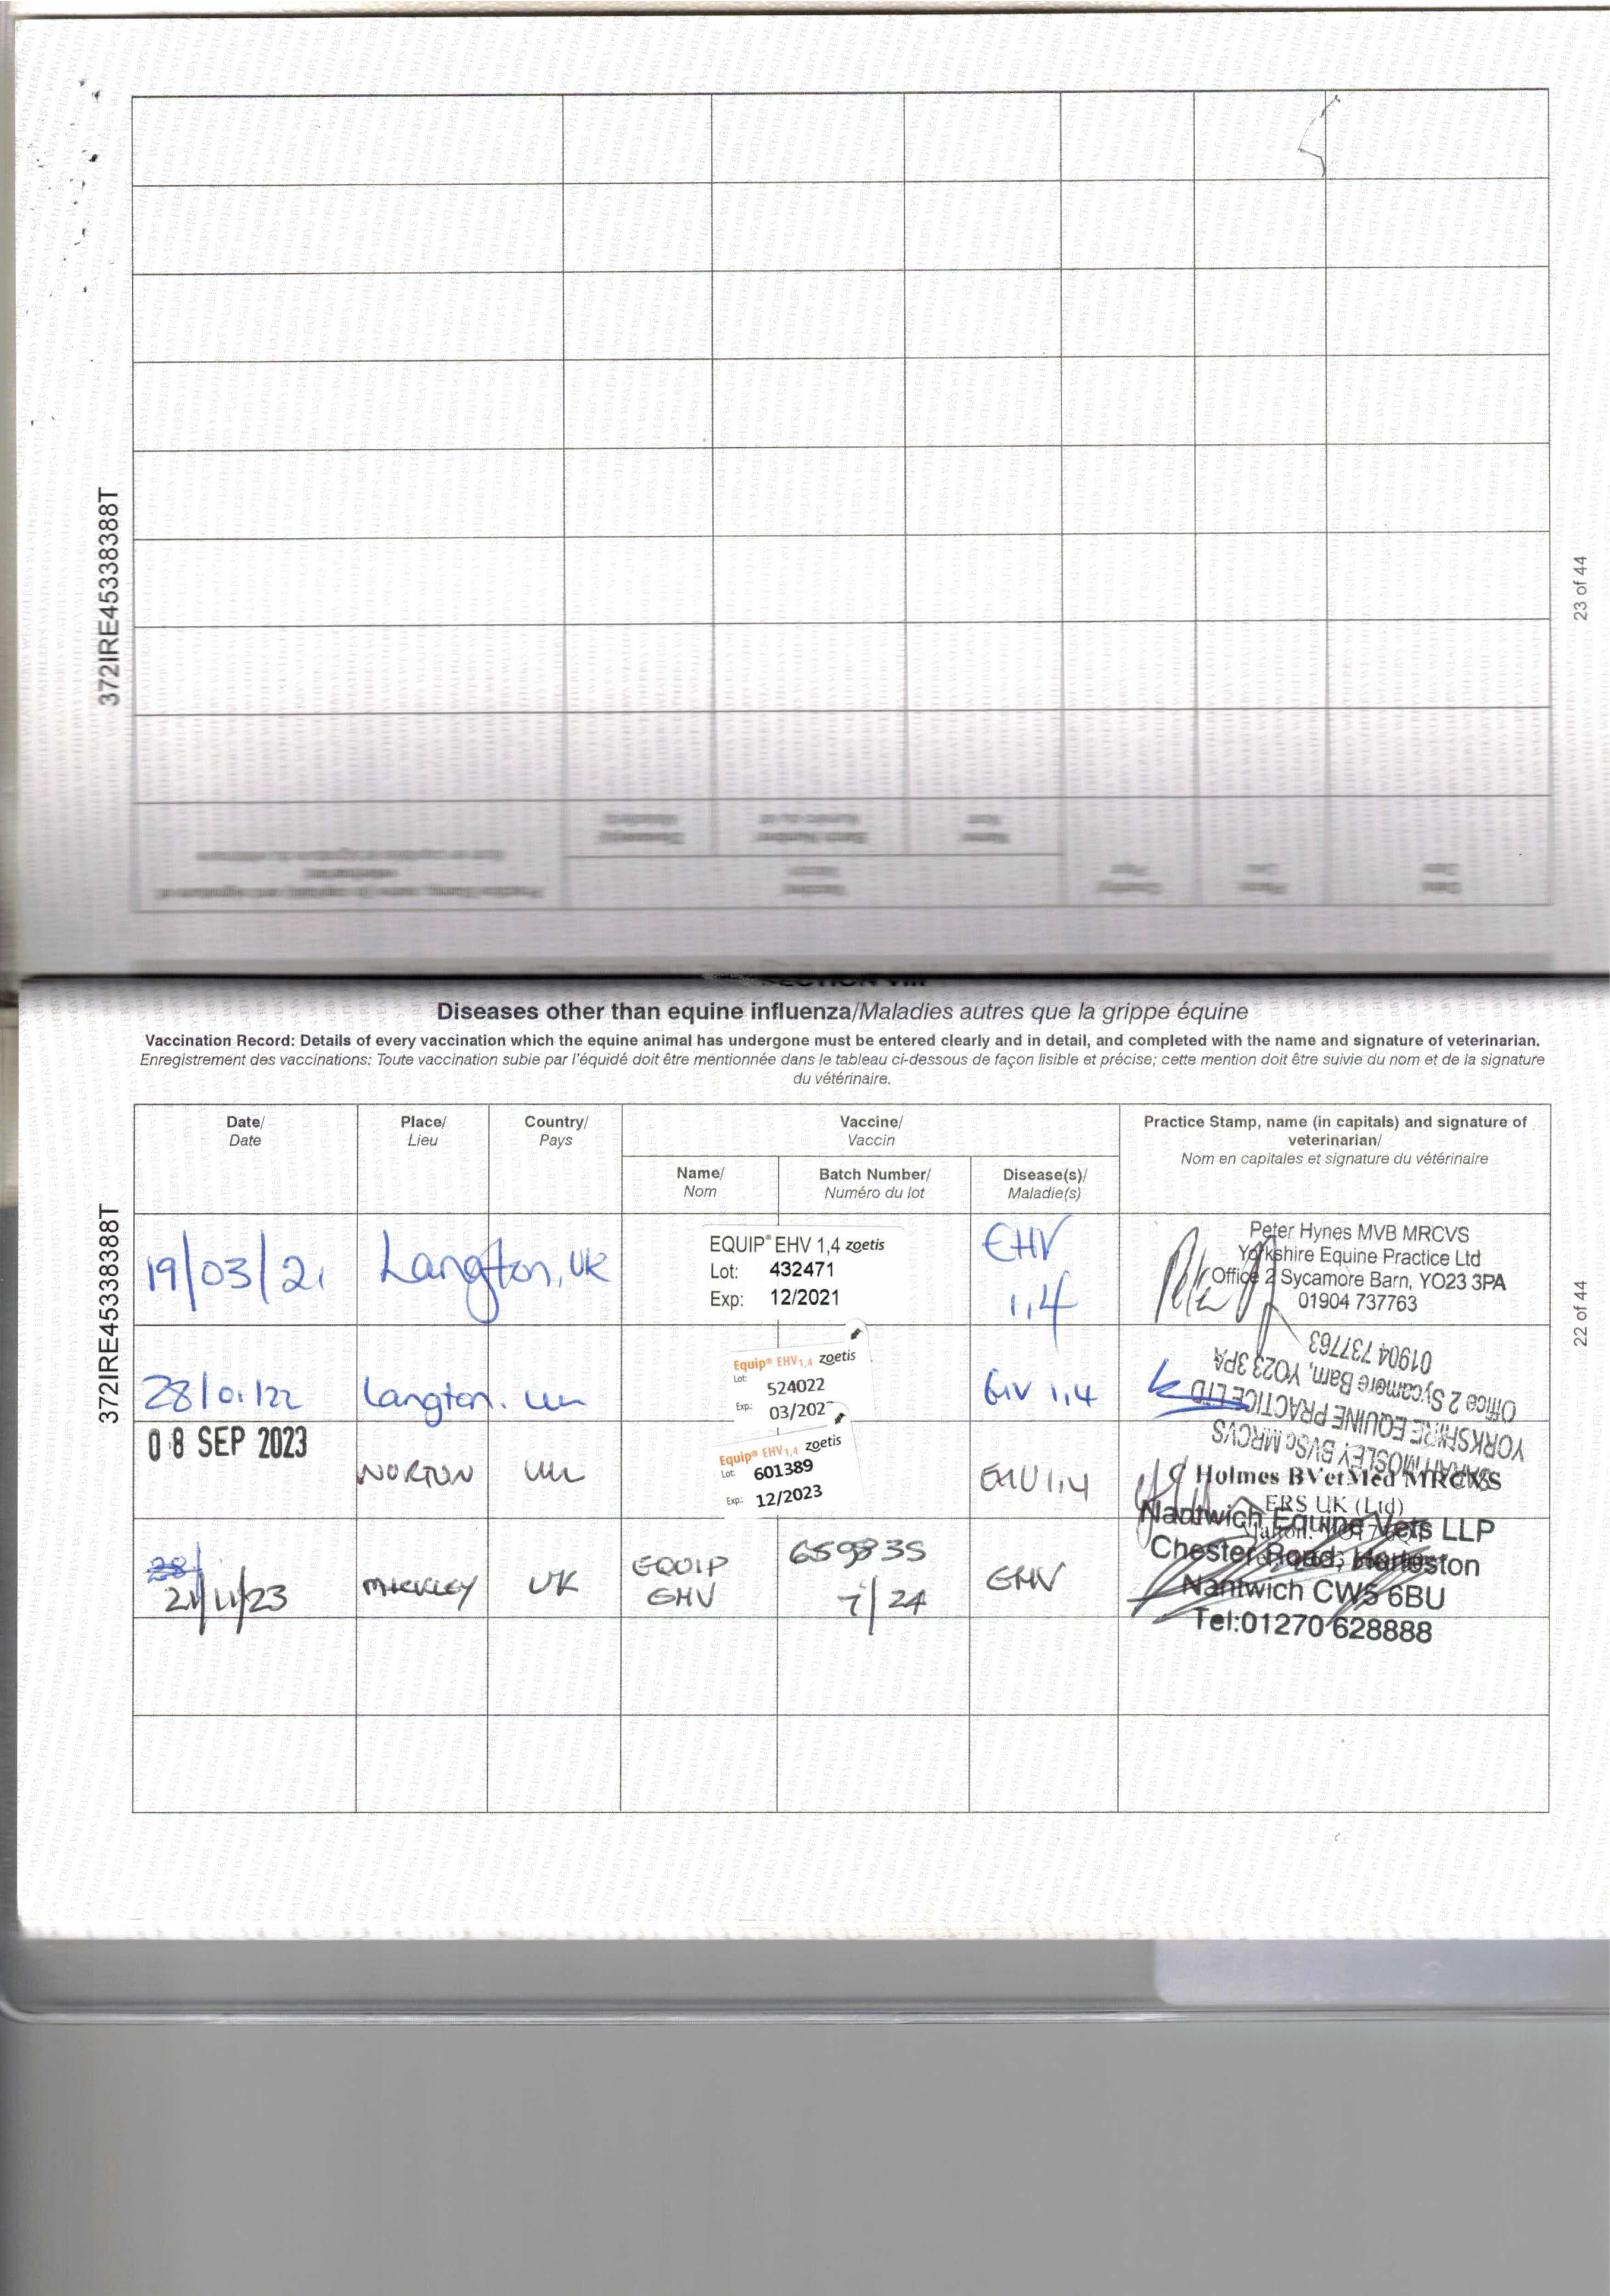 372IRE45338388T
23 of 44
SECTION VIII
Diseases other than equine influenza/Maladies autres que la grippe équine
Vaccination Record: Details of every vaccination which the equine animal has undergone must be entered clearly and in detail, and completed with the name and signature of veterinarian.
Enregistrement des vaccinations: Toute vaccination subie par l'équidé doit être mentionnée dans le tableau ci-dessous de façon lisible et précise; cette mention doit être suivie du nom et de la signature
du vétérinaire.
372IRE45338388T
22 of 44
Date/
Date
Place/
Lieu
Country/
Pays
Vaccine/
Vaccin
Name/
Nom
Batch Number/
Numéro du lot
Disease(s)/
Maladie(s)
Practice Stamp, name (in capitals) and signature of
veterinarian/
Nom en capitales et signature du vétérinaire
19/03/21
Langton, UK
EQUIP® EHV 1,4 zoetis
Lot: 432471
Exp: 12/2021
EHV
1,4
Peter Hynes MVB MRCVS
Yorkshire Equine Practice Ltd
Office 2 Sycamore Barn, YO23 3PA
01904 737763
28/01/22
Langton.
Equip® EHV1,4 zoetis
Lot: 524022
Exp: 03/202
1,4
MOSLEY BVSc MRCVS
YORKSHIRE EQUINE PRACTICE LTD
Office 2 Sycamore Barn, YO23 3PA
01904 737763
08 SEP 2023
NORTON
Equip® EHV1,4 zoetis
Lot: 601389
Exp: 12/2023
1,4
Holmes BVetMed MRCVS
ERS UK (Ltd)
21/11/23
MICKLEY
UK
EQUIP
EHV
659835
7/24
EHV
Nantwich Equine Vets LLP
Chester Road, Hurleston
Nantwich CW5 6BU
Tel:01270 628888